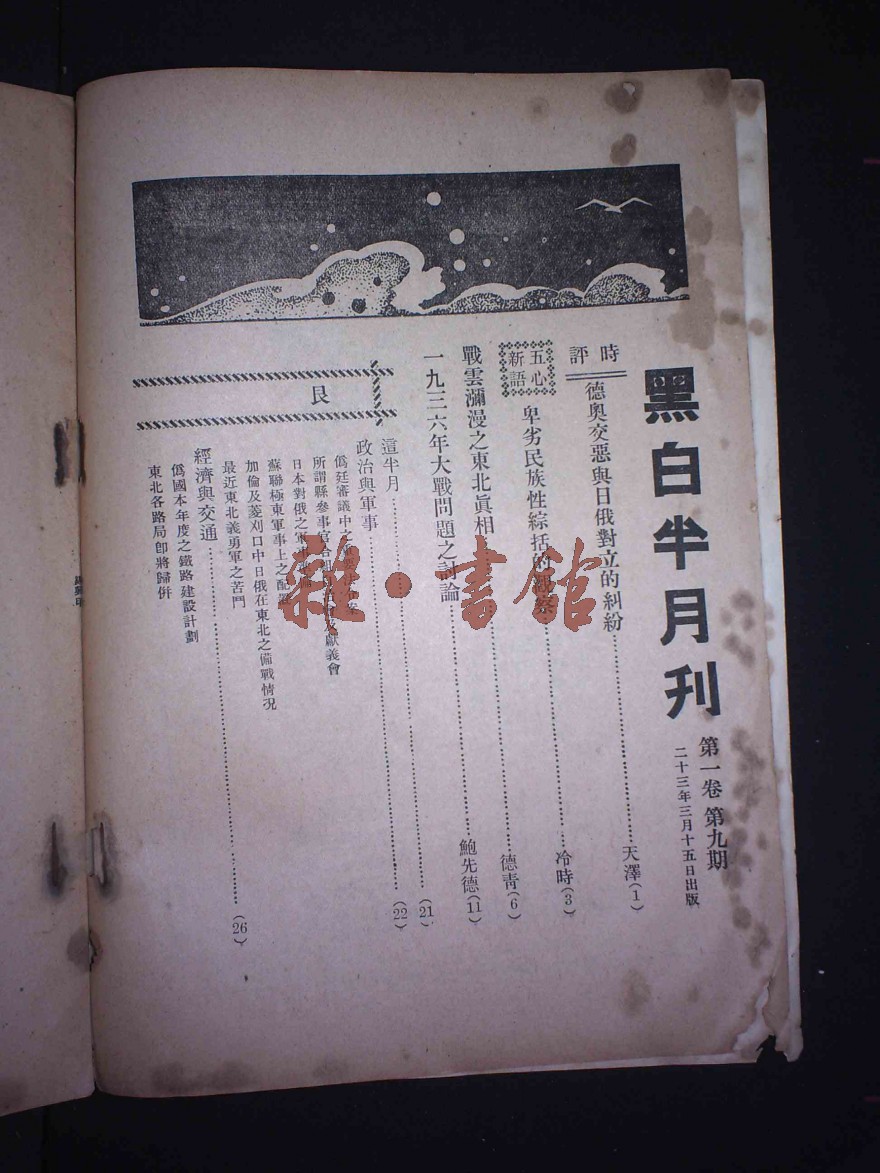 黑白半月刊
第一卷 第九期
二十三年三月十五日出版
時評
德奧交惡與日俄對立的糾紛……天澤(1)
五心新語
卑劣民族性綜括的觀察……冷時(3)
戰雲瀰漫之東北眞相……德青(6)
一九三六年大戰問題之討論……鮑先德(11)
艮
這半月……(21)
政治與軍事……(22)
僞廷審議中之
所謂縣參事官合 獻義會
日本對俄之軍事
蘇聯極東軍事上之配置
加倫及菱刈口中日俄在東北之備戰情况
最近東北義勇軍之苦鬥
經濟與交通……(26)
僞國本年度之鐵路建設計劃
東北各路局卽將歸併
雜·書館